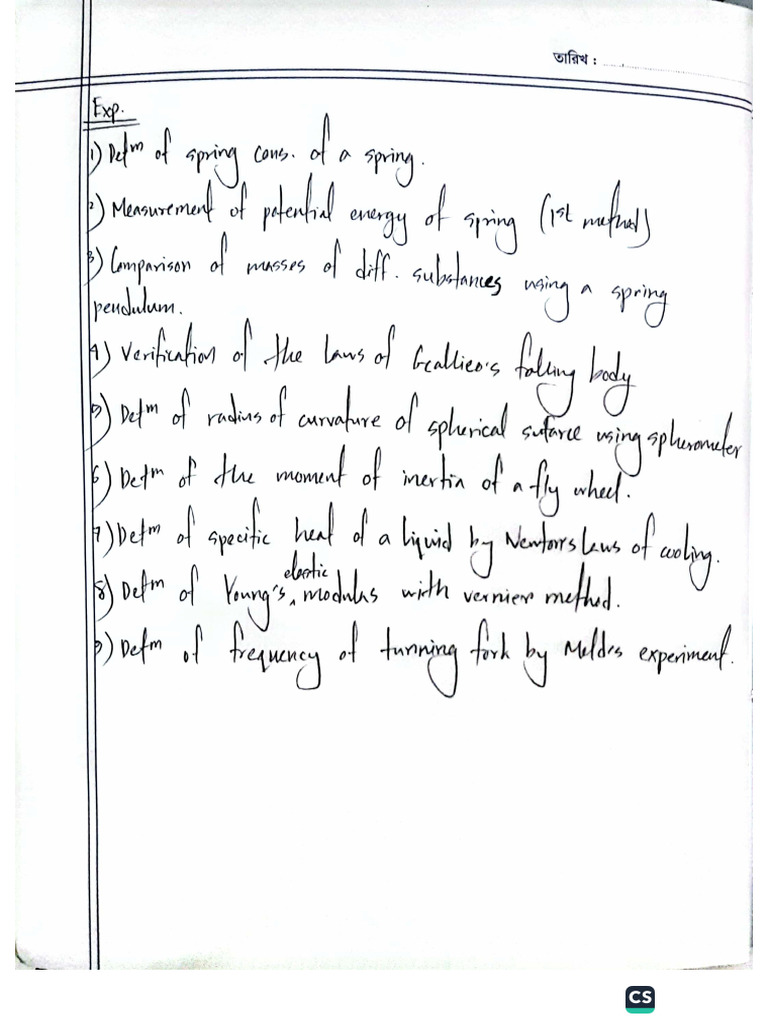 তারিখ :
Exp.
1) Detm of spring cons. of a spring.
2) Measurement of potential energy of spring (1st method)
3) Comparison of masses of diff. substances using a spring
pendulum.
4) Verification of the laws of Gallieo's falling body
5) Detm of radius of curvature of spherical suface using spherometer
6) Detm of the moment of inertia of a fly wheel.
7) Detm of specific heat of a liquid by Newton's laws of cooling.
8) Detm of Young's elastic modulus with vernier method.
9) Detm of frequency of tunning fork by Meldes experiment.
CS